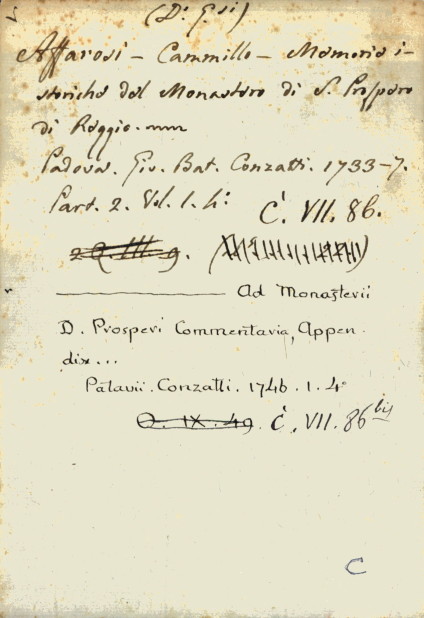 (D. G.si)
Affarosi - Cammillo - Memorie i-
storiche del Monastero di S. Prospero
di Reggio.
Padova. Giv. Bat. Conzatti. 1733-7.
Part. 2. Vol. 1. 4º
C. VII. 86.
2 Q. III. 9.
Ad Monasterii
D. Prosperi Commentaria, Appen-
dix...
Patavii. Conzatti. 1746. 1. 4º
Q. IX. 49. C. VII. 86 bis
C